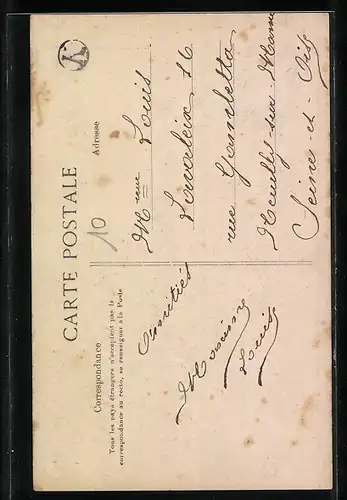 CARTE POSTALE
Correspondance
Tous les pays étrangers n'acceptent pas la
correspondance au recto, se renseigner à la Poste
Adresse
10
Amitiés
Louis
Mme Louis
rue Gambetta
Neuilly-sur-Marne
Seine-et-Oise